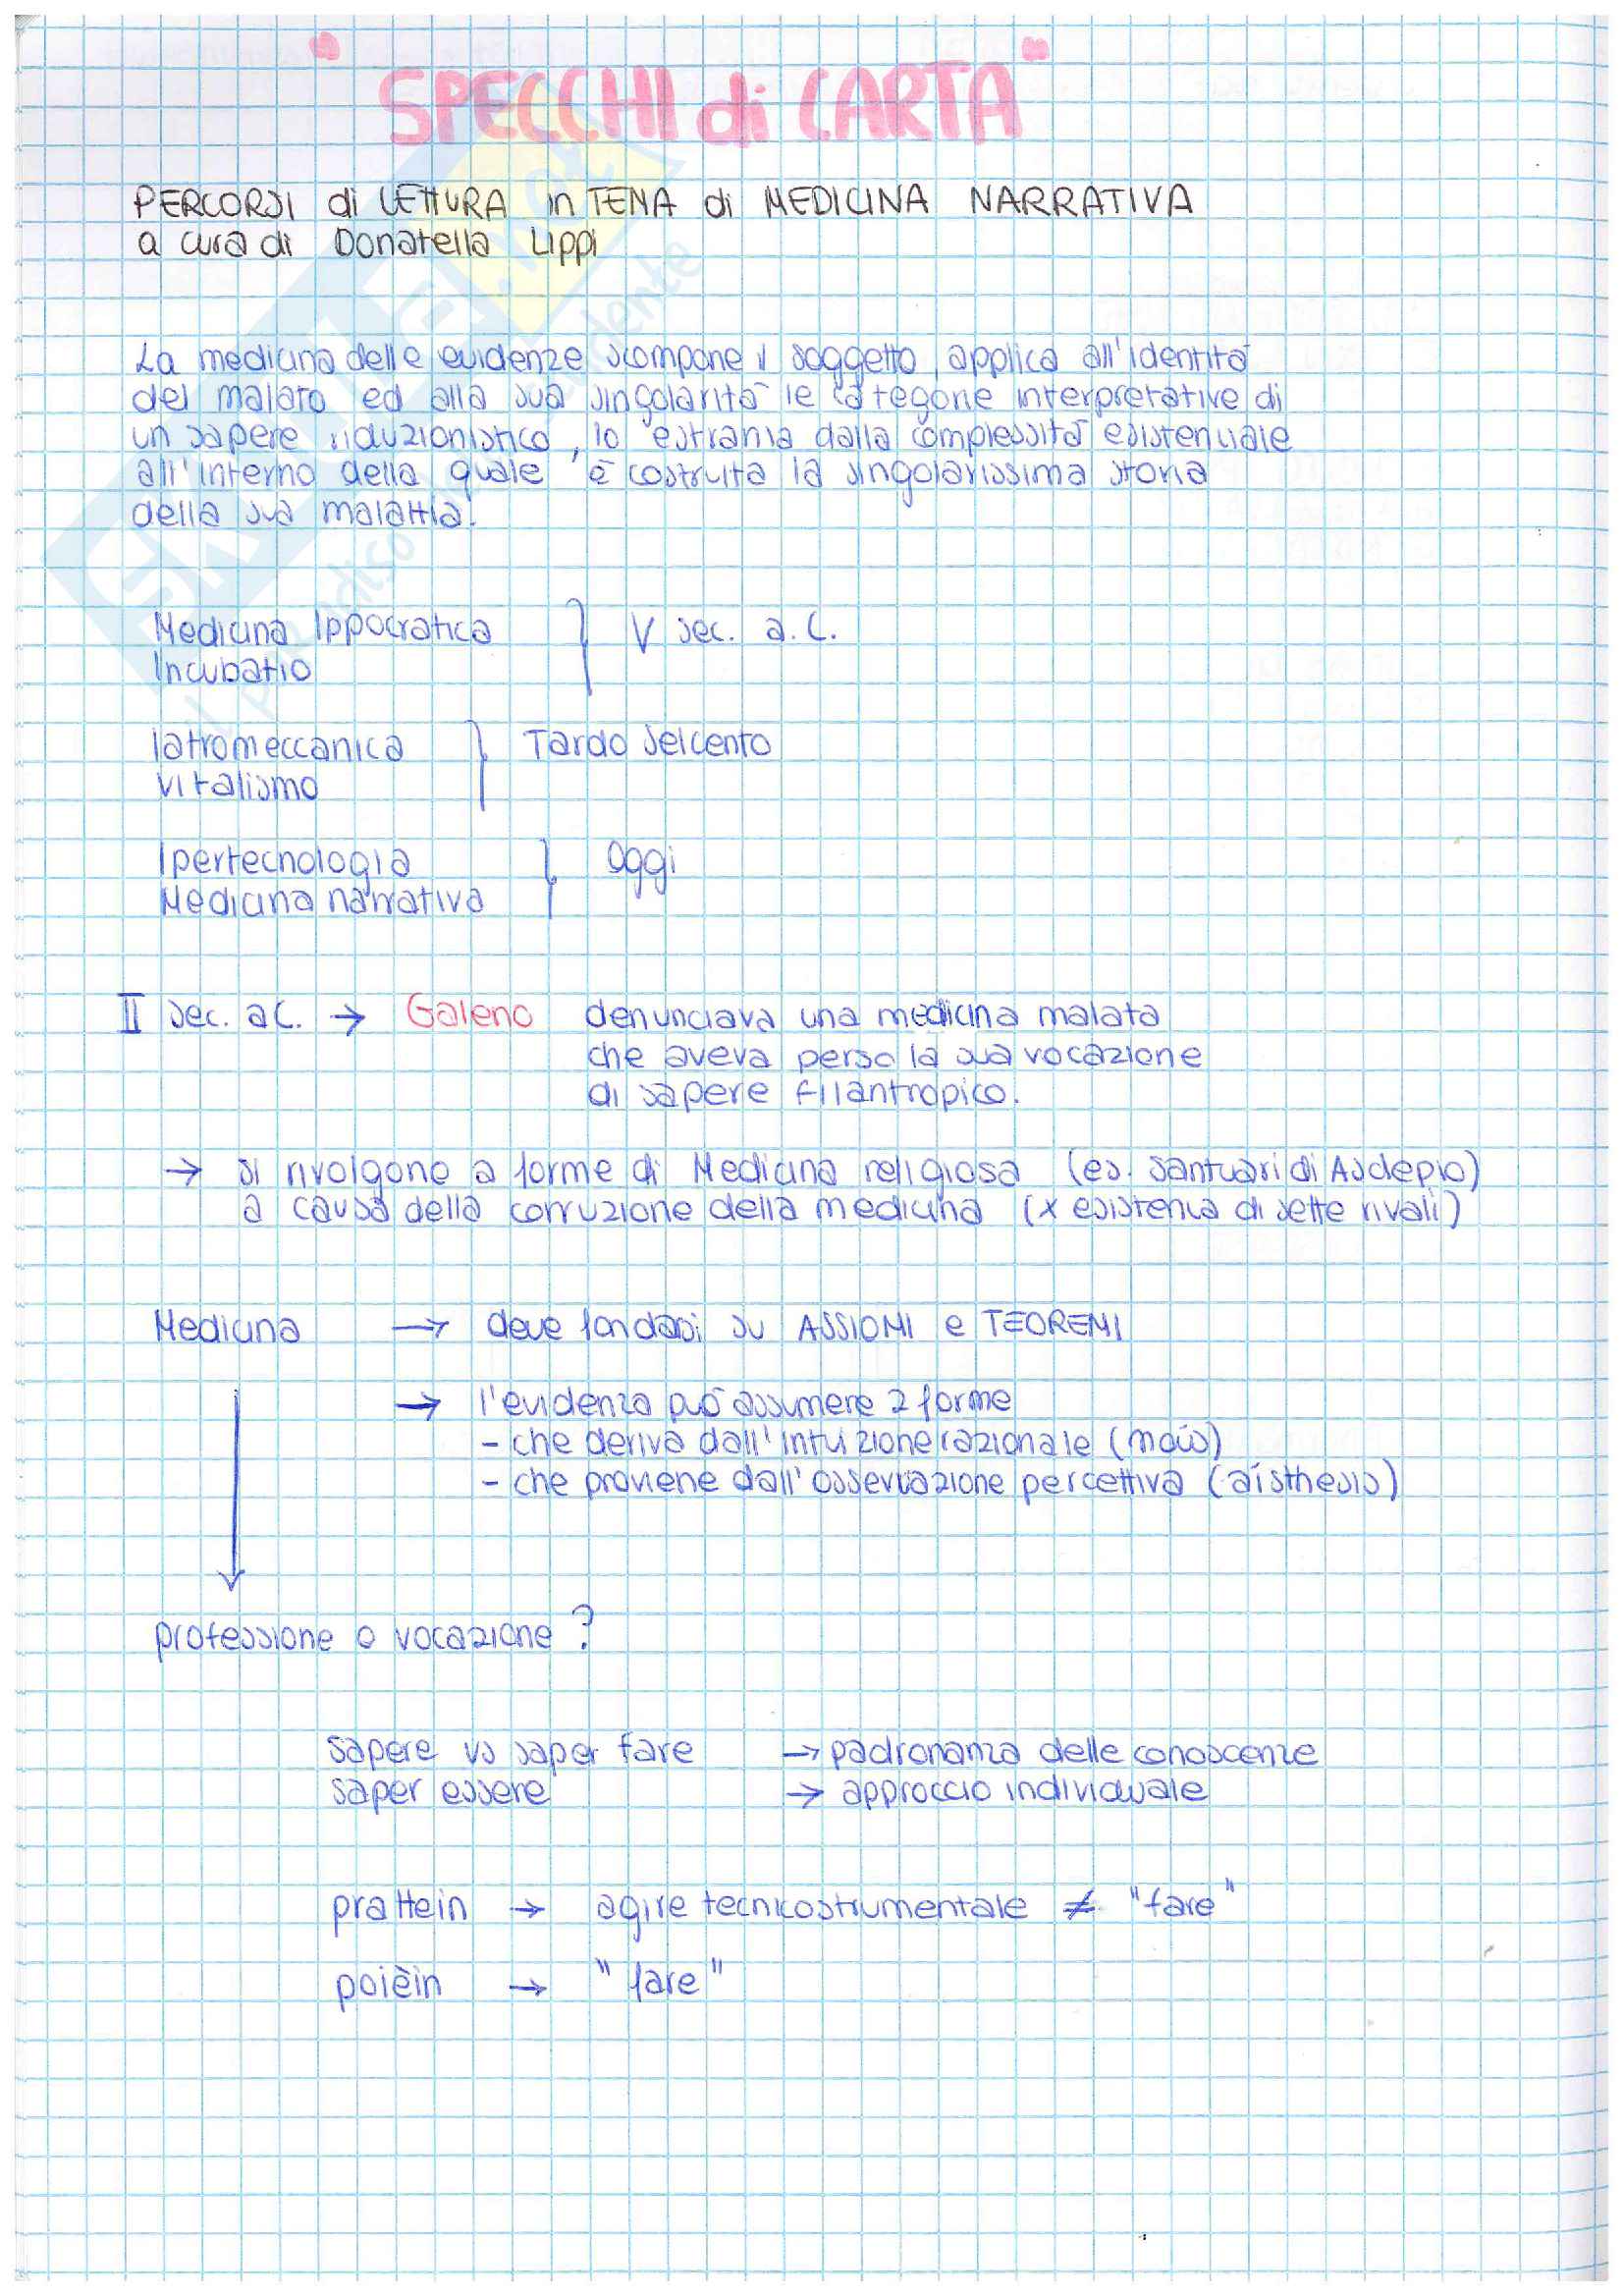 "SPECCHI di CARTA"
PERCORSI di LETTURA in TEMA di MEDICINA NARRATIVA
a cura di Donatella Lippi
La medicina delle evidenze scompone il soggetto, applica all'identità
del malato ed alla sua singolarità le categorie interpretative di
un sapere riduzionistico, lo estrania dalla complessità esistenziale
all'interno della quale è costruita la singolarissima storia
della sua malattia.
Medicina Ippocratica } V sec. a.C.
Incubatio
Iatromeccanica } Tardo Seicento
vitalismo
Ipertecnologia } Oggi
Medicina narrativa
II sec. a C. → Galeno denunciava una medicina malata
che aveva perso la sua vocazione
di sapere filantropico.
→ si rivolgono a forme di Medicina religiosa (es. Santuari di Asclepio)
a causa della corruzione della medicina (x esistenza di sette rivali)
Medicina → deve fondarsi su ASSIOMI e TEOREMI
→ l'evidenza può assumere 2 forme
- che deriva dall'intuizione razionale
- che proviene dall'osservazione percettiva (aísthesis)
professione o vocazione ?
sapere vs saper fare → padronanza delle conoscenze
saper essere → approccio individuale
prattein → agire tecnicostrumentale ≠ "fare"
poièin → "fare"